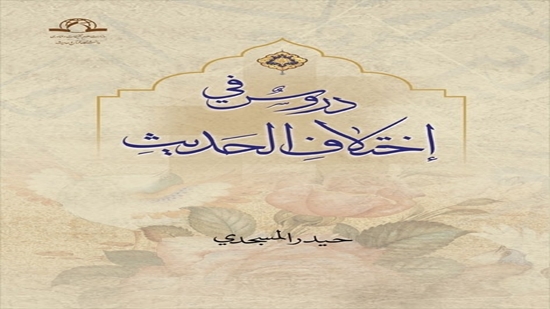 دروسٌ في
إختلافِ الحَديثِ
حيدر المسجدي